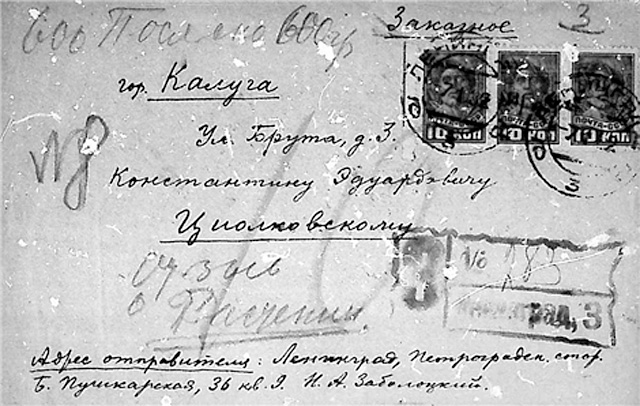 600 Послано 600 гр
Заказное
3
гор. Калуга
Ул. Брута, д. 3.
Константину Эдуардовичу
Циолковскому
Отзыв
о
ПОЧТА
10 КОП
КОП
№ 283
ЛЕНИНГРАД 3
Адрес отправителя: Ленинград, Петроградск. стор.
Б. Пушкарская, 36 кв. 9. Н. А. Заболоцкий.